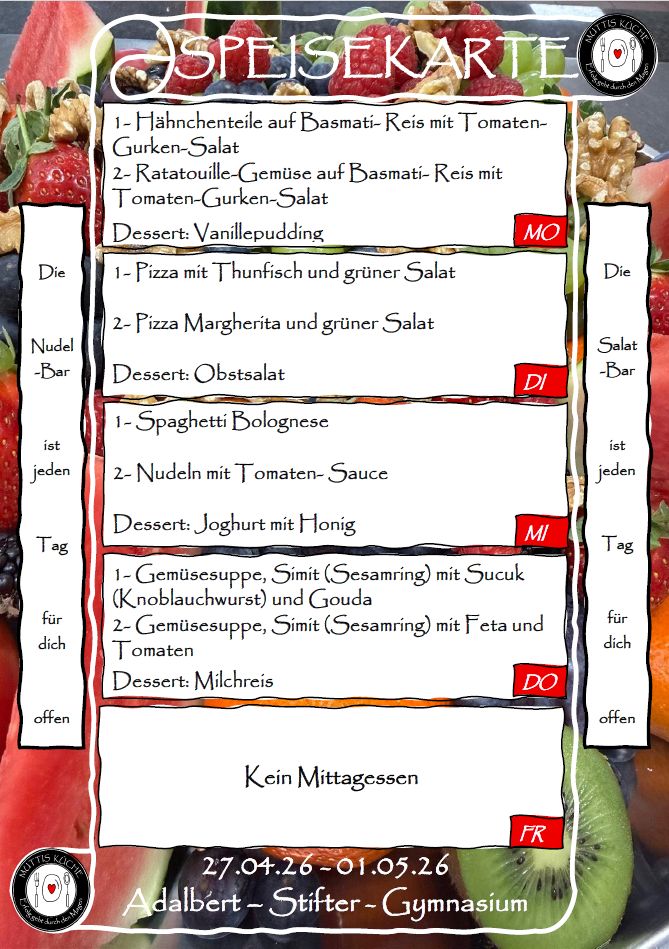 SPEISEKARTE
MUTTIS KÜCHE
1- Hähnchenteile auf Basmati- Reis mit Tomaten-
Gurken-Salat
2- Ratatouille-Gemüse auf Basmati- Reis mit
Tomaten-Gurken-Salat
Dessert: Vanillepudding
MO
1- Pizza mit Thunfisch und grüner Salat
2- Pizza Margherita und grüner Salat
Dessert: Obstsalat
DI
1- Spaghetti Bolognese
2- Nudeln mit Tomaten- Sauce
Dessert: Joghurt mit Honig
MI
1- Gemüsesuppe, Simit (Sesamring) mit Sucuk
(Knoblauchwurst) und Gouda
2- Gemüsesuppe, Simit (Sesamring) mit Feta und
Tomaten
Dessert: Milchreis
DO
Kein Mittagessen
FR
Die
Nudel
-Bar
ist
jeden
Tag
für
dich
offen
Die
Salat
-Bar
ist
jeden
Tag
für
dich
offen
MUTTIS KÜCHE
27.04.26 - 01.05.26
Adalbert – Stifter - Gymnasium